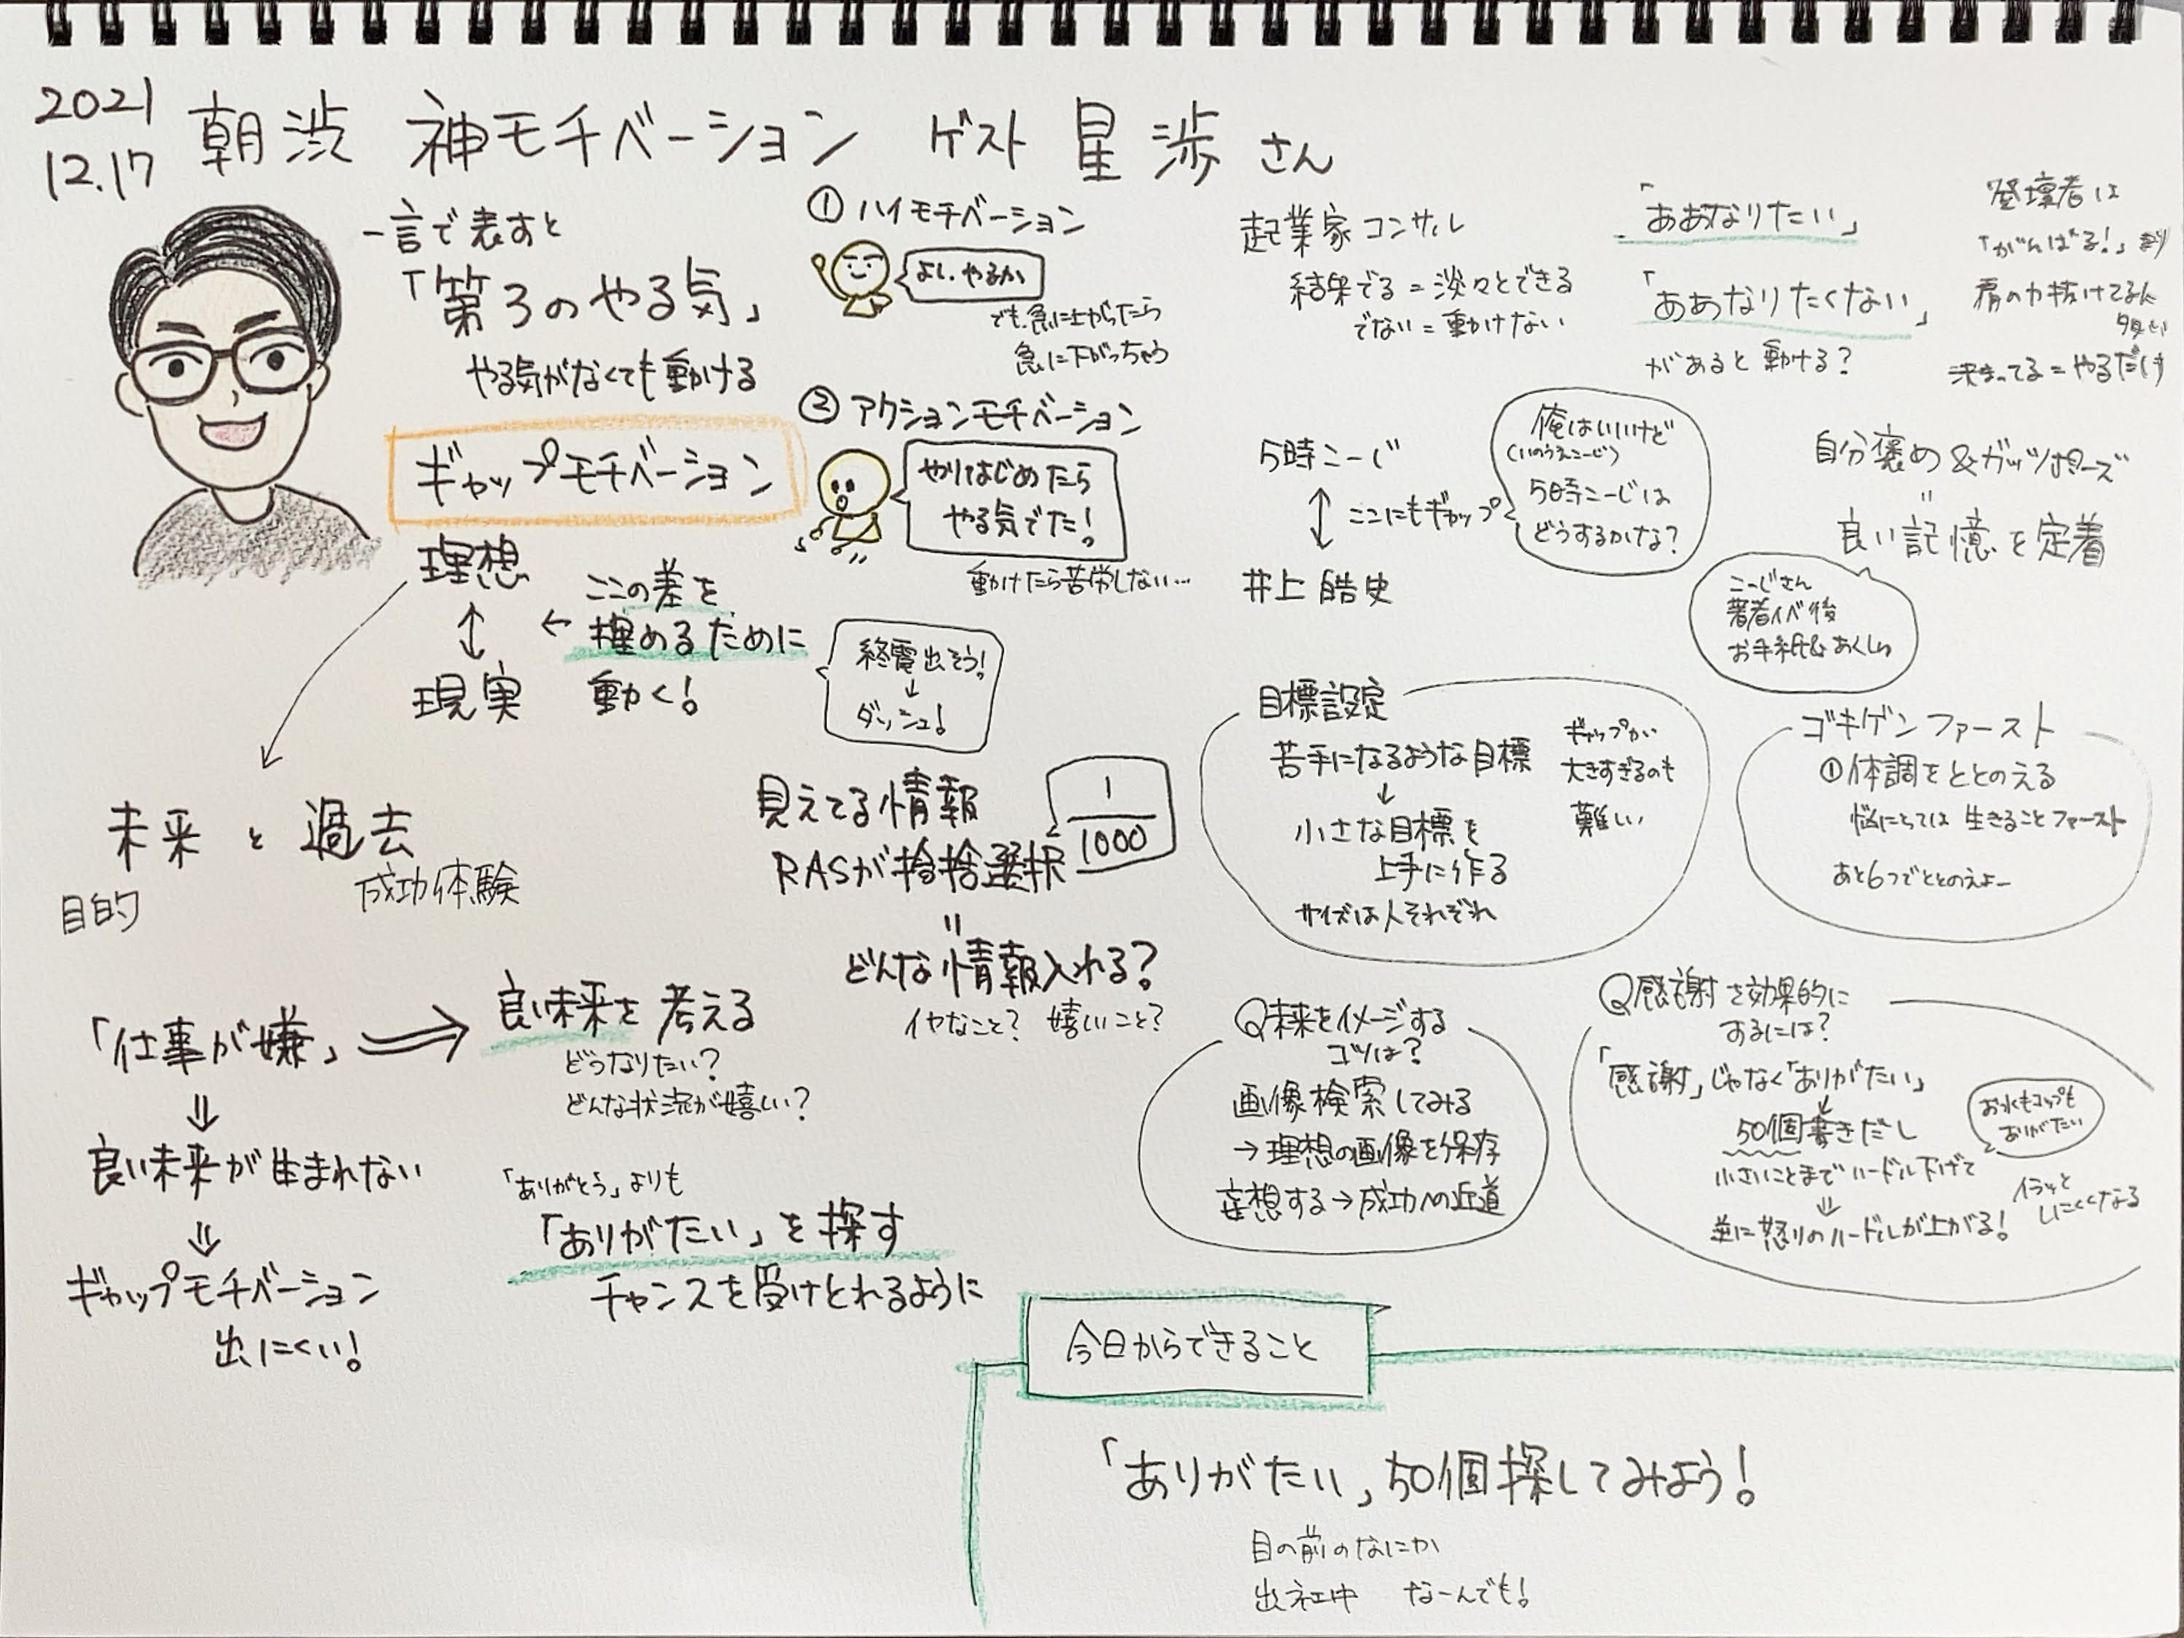 2021
12.17
朝渋 神モチベーション ゲスト 星 渉 さん
一言で表すと
「第3のやる気」
やる気がなくても動ける
ギャップモチベーション
理想
↕
現実
← ここの差を
埋めるために
動く!
終電出そう!
↓
ダッシュ!
① ハイモチベーション
よし、やるか
でも急に上がったら
急に下がっちゃう
② アクションモチベーション
やりはじめたら
やる気でた!
動けたら苦労しない…
未来 と 過去
目的
成功体験
「仕事が嫌」⇒ 良い未来を考える
どうなりたい?
どんな状況が嬉しい?
⇓
良い未来が生まれない
⇓
ギャップモチベーション
出にくい!
「ありがとう」よりも
「ありがたい」を探す
チャンスを受けとれるように
見えてる情報
RASが捨捨選択
1/1000
=
どんな情報入れる?
イヤなこと? 嬉しいこと?
起業家コンサル
結果でる=淡々とできる
でない=動けない
「ああなりたい」
「ああなりたくない」
があると動ける?
登壇者は
「がんばる!」より
肩の力抜けてる人
多い
決まってる=やるだけ
5時こーじ
↕ ここにもギャップ
井上皓史
俺はいいけど
(いのうえこーじ)
5時こーじは
どうするかな?
自分褒め&ガッツポーズ
=
良い記憶を定着
こーじさん
著者イベ後
お手紙&あくしゅ
目標設定
苦手になるような目標
↓
小さな目標を
上手に作る
サイズは人それぞれ
ギャップが
大きすぎるのも
難しい
ゴキゲンファースト
①体調をととのえる
脳にとっては生きることファースト
あと6つでととのえよー
Q未来をイメージする
コツは?
画像検索してみる
→理想の画像を保存
妄想する→成功への近道
Q感謝を効果的に
するには?
「感謝」じゃなく「ありがたい」
↓
50個書きだし
小さいことまでハードル下げて
⇓
逆に怒りのハードルが上がる!
お水もコップも
ありがたい
イラッと
しにくくなる
今日からできること
「ありがたい」50個探してみよう!
目の前のなにか
出社中 なーんでも!